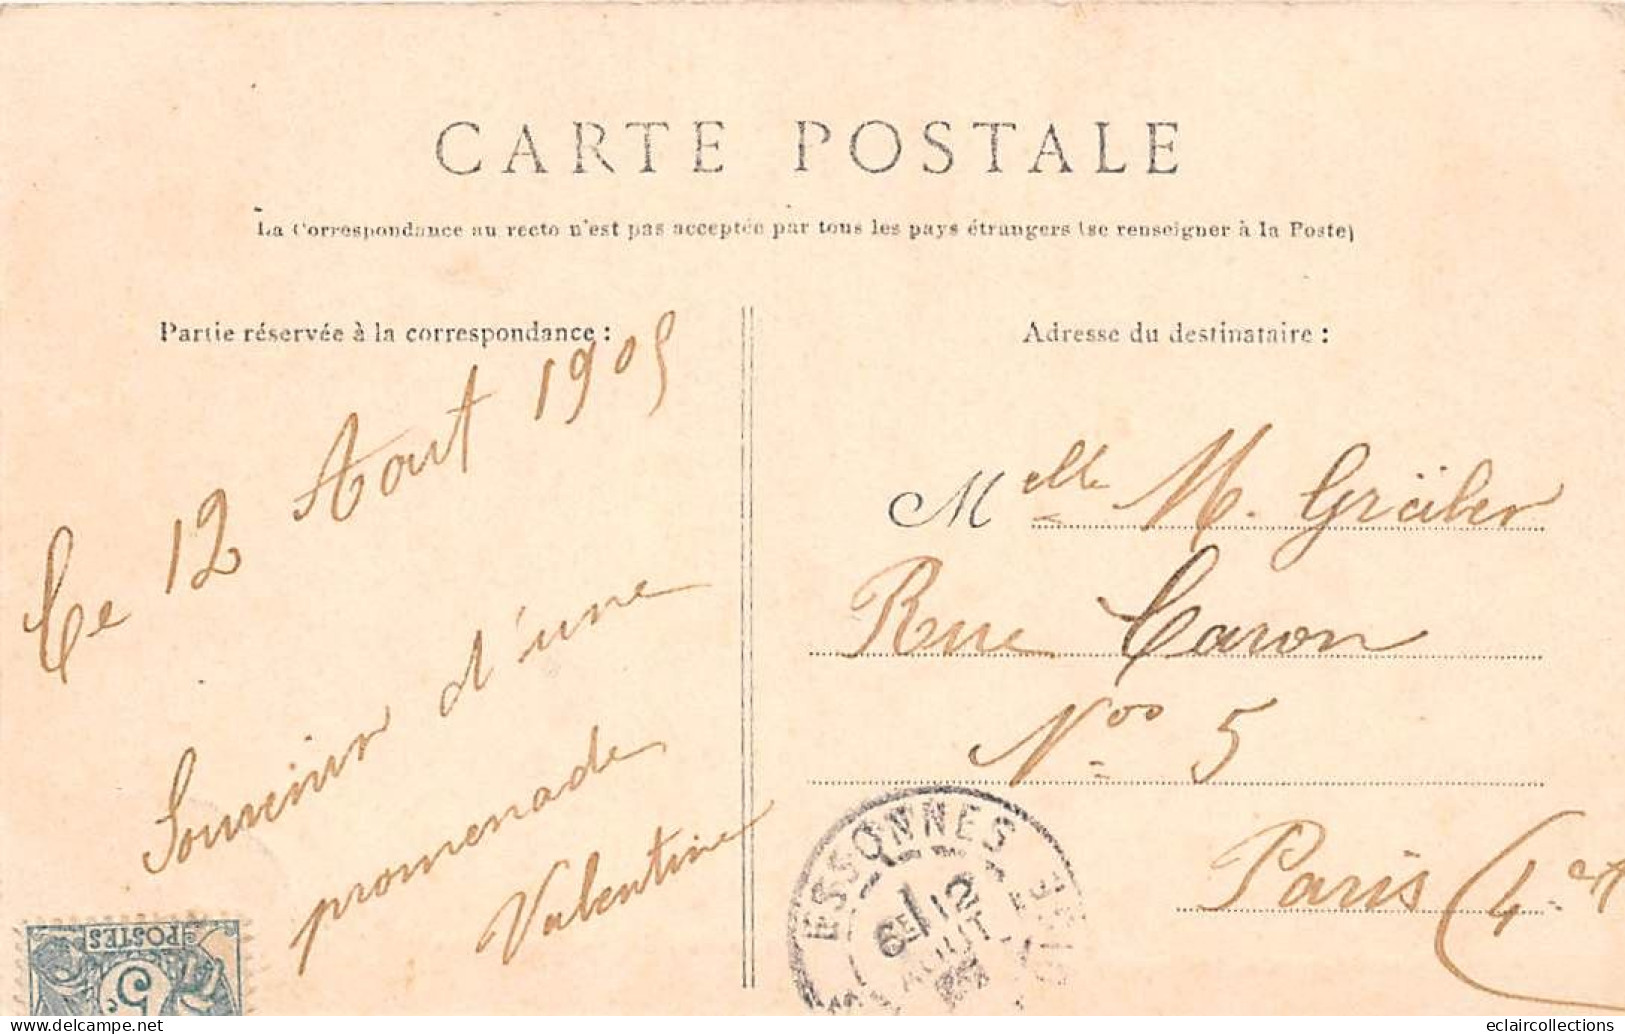 CARTE POSTALE
La Correspondance au recto n'est pas acceptée par tous les pays étrangers (se renseigner à la Poste)
Partie réservée à la correspondance :
Ce 12 Aout 1905
Souvenir d'une
promenade
Valentine
Adresse du destinataire :
Melle M.
Rue Caron
Nos 5
Paris (4e
ESSONNES
6E 12
AOUT
POSTES
5c
eclaircollections